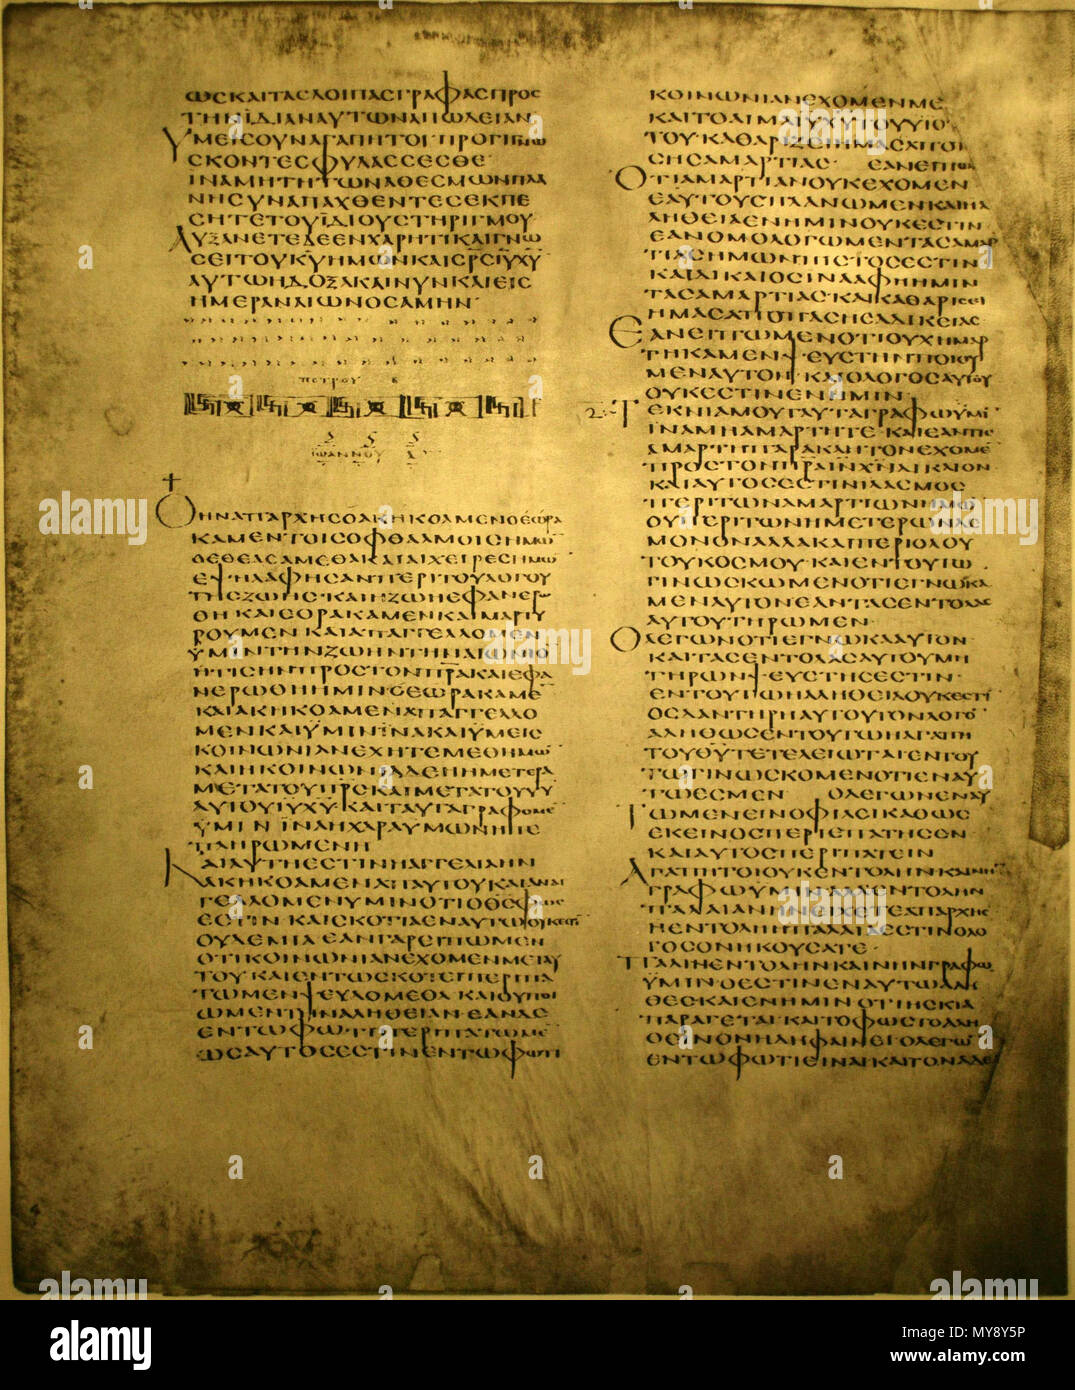 ωσκαιτασλοιπασγραφασπροσ
τηνϊδιαναυτωναπωλειαν
Υμεισουναγαπητοιπρογινω
σκοντεσφυλασσεσθε
ιναμητητωναθεσμωνπλα
νησυναπαχθεντεσεκπε
σητετουϊδιουστηριγμου
Αυξανετεδεενχαριτικαιγνω
σειτουκυημωνκαισρσιυχυ
αυτωηδοξακαινυνκαιεισ
ημεραναιωνοσαμην
πετρου β
ιωαννου α
Οηναπαρχησοακηκοαμενοεωρα
καμεντοισοφθαλμοισημω
οεθεασαμεθακαιαιχειρεσημω
εψηλαφησανπεριτουλογου
τησζωησκαιηζωηεφανερω
θηκαιεορακαμενκαιμαρτυ
ρουμενκαιαπαγγελλομεν
υμιντηνζωηντηναιωνιο
ητισηνπροστονπρακαιεφα
νερωθηημινοεωρακαμε
καιακηκοαμεναπαγγελλο
μενκαιϋμινϊνακαιϋμεισ
κοινωνιανεχητεμεθημω
καιηκοινωνιαδεηημετερα
μετατουπρσκαιμετατουυυ
αυτουιυχυκαιταυταγραφομε
ϋμινϊναηχαραυμωνηπε
πληρωμενη
Καιαυτηεστινηαγγελιαην
ακηκοαμεναπαυτουκαιαναγ
γελλομενυμινοτιοθσφωσ
εστινκαισκοτιαεναυτωουκεστι
ουδεμιαεανγαρειπωμεν
οτικοινωνιανεχομενμεταυ
τουκαιεντωσκοτειπεριπα
τωμενψευδομεθακαιουποι
ωμεντηναληθειανεανδε
εντωφωτιπεριπατωμε
ωσαυτοσεστινεντωφωτι
κοινωνιανεχομενμε
καιτοαιμαιυχυτουυιο
τουκαθαριζειημασαποπ
σησαμαρτιασ εανειπω
Οτιαμαρτιανουκεχομεν
εαυτουσπλανωμενκαιηα
ληθειαενημινουκεστιν
εανομολογωμεντασαμαρ
τιασημωνπιστοσεστιν
καιδικαιοσινααφηημιν
τασαμαρτιασκαικαθαρισει
ημασαποπασησαδικειασ
Εανειπωμενοτιουχημαρ
τηκαμενψευστηνποιου
μεναυτονκαιολογοσαυτου
ουκεστινενημιν
Τεκνιαμουταυταγραφωυμι
ιναμηαμαρτητεκαιεαντισ
αμαρτηπαρακλητονεχομε
προστονπραινχνδικαιον
καιαυτοσεστινιλασμοσ
περιτωναμαρτιωνημω
ουπεριτωνημετερωνδε
μονοναλλακαιπεριολου
τουκοσμουκαιεντουτω
γινωσκωμενοτιεγνωκα
μεναυτονεαντασεντολασ
αυτουτηρωμεν
Ολεγωνοτιεγνωκααυτον
καιτασεντολασαυτουμη
τηρωνψευστησεστιν
εντουτωηαληθειαουκεστι
οσδαντηρηαυτουτονλογο
αληθωσεντουτωηαγαπη
τουθυτετελειωταιεντου
τωγινωσκομενοτιεναυ
τωεσμεν ολεγωνεναυ
Τωμενεινοφιλεικαθωσ
εκεινοσπεριεπατησεν
καιαυτοσπεριπατειν
Αγαπητοιουκεντοληνκαινη
γραφωϋμιναλλεντολην
παλαιανηνειχετεαπαρχησ
ηεντοληηπαλαιαεστινολο
γοσονηκουσατε
Παλινεντοληνκαινηνγραφω
ϋμινοεστινεναυτωαλη
θεσκαιενημινοτιησκια
παραγεταικαιτοφωστοαλη
θεινονηδηφαινειολεγω
εντωφωτιειναικαιτοναδελ
a
alamy
alamy
Image ID: MY8Y5P
www.alamy.com